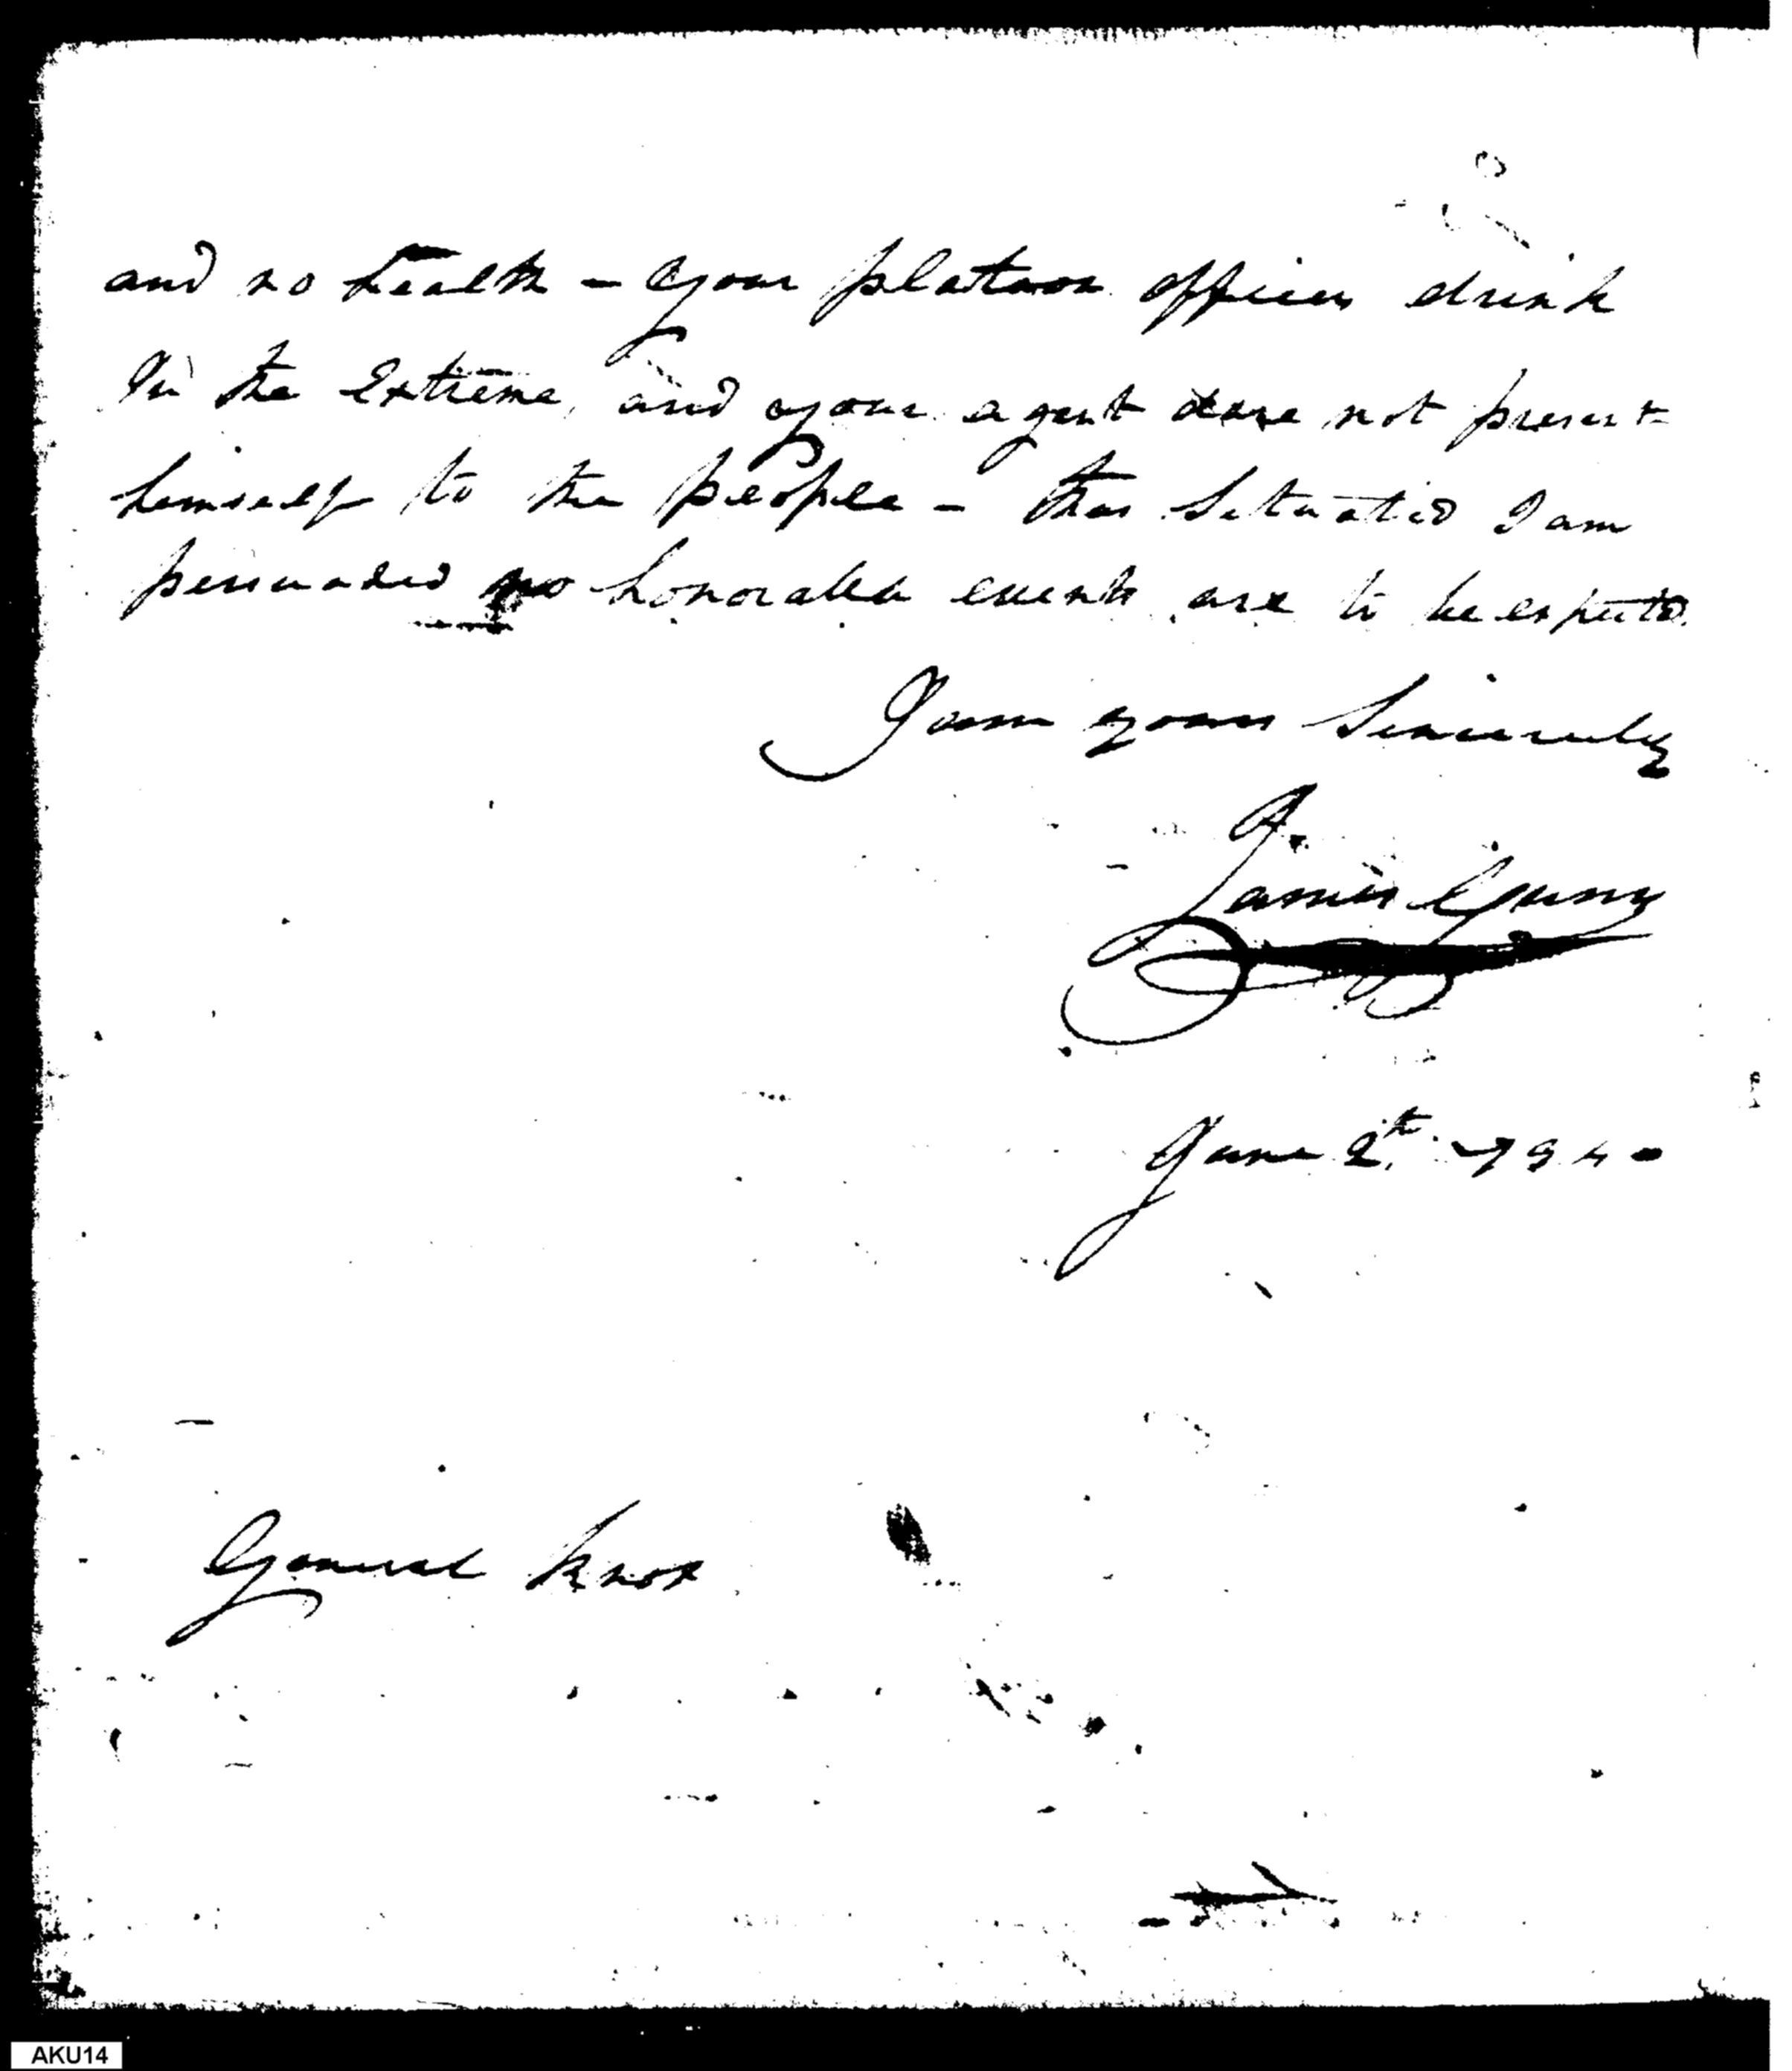 and no health – your platoon officers drink
In the extreme, and your agent dare not present
himself to the people – thus Situated I am
persuaded no honorable events are to be expected.
I am yours Sincerely
James Gunn
June 2th 794
General Knox
AKU14